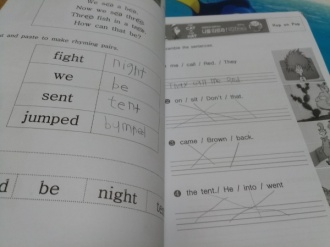 We saw a bee.
Now we saw three.
Three fish in a tree.
How can that be?
and paste to make rhyming pairs.
fight night
we be
sent tent
jumped bumped
d be night te
Pop on Pop
me / call / Red. / They
They call me Red.
on / sit / Don't / that.
came / Brown / back.
the tent. / He / into / went